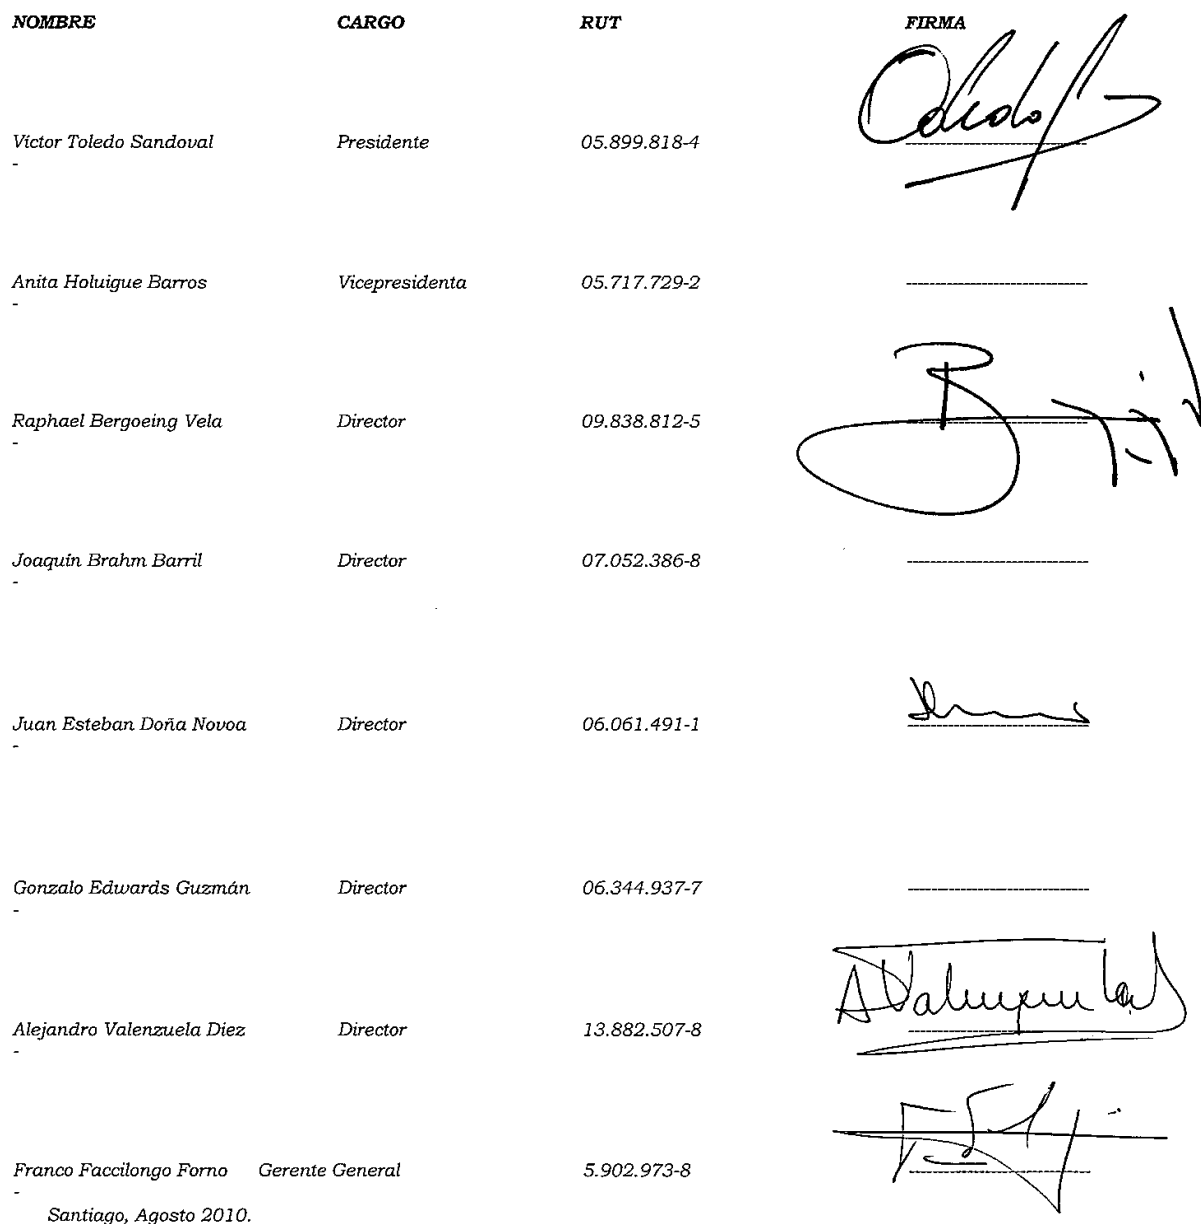 NOMBRE CARGO RUT FIRMA
Víctor Toledo Sandoval Presidente 05.899.818-4
-
Anita Holuigue Barros Vicepresidenta 05.717.729-2
-
Raphael Bergoeing Vela Director 09.838.812-5
-
Joaquín Brahm Barril Director 07.052.386-8
-
Juan Esteban Doña Novoa Director 06.061.491-1
-
Gonzalo Edwards Guzmán Director 06.344.937-7
-
AValenzuela
Alejandro Valenzuela Diez Director 13.882.507-8
-
Franco Faccilongo Forno Gerente General 5.902.973-8
-
Santiago, Agosto 2010.